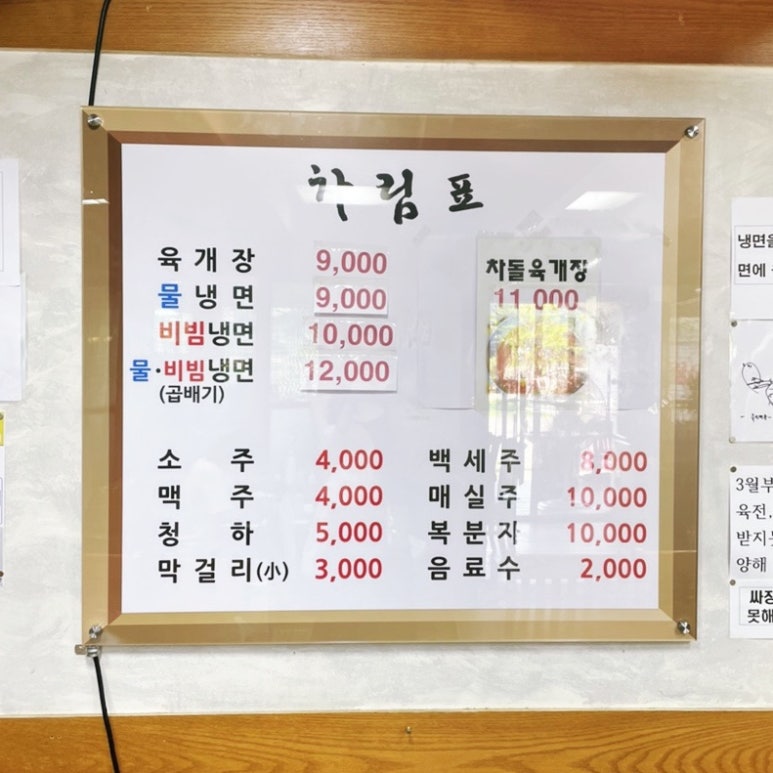 차림표
육개장 9,000
물냉면 9,000
비빔냉면 10,000
물·비빔냉면 12,000
(곱배기)
차돌육개장
11,000
소주 4,000
맥주 4,000
청하 5,000
막걸리(小) 3,000
백세주 8,000
매실주 10,000
복분자 10,000
음료수 2,000
냉면을
면에
3월부
육전.
받지못
양해
싸장
못해